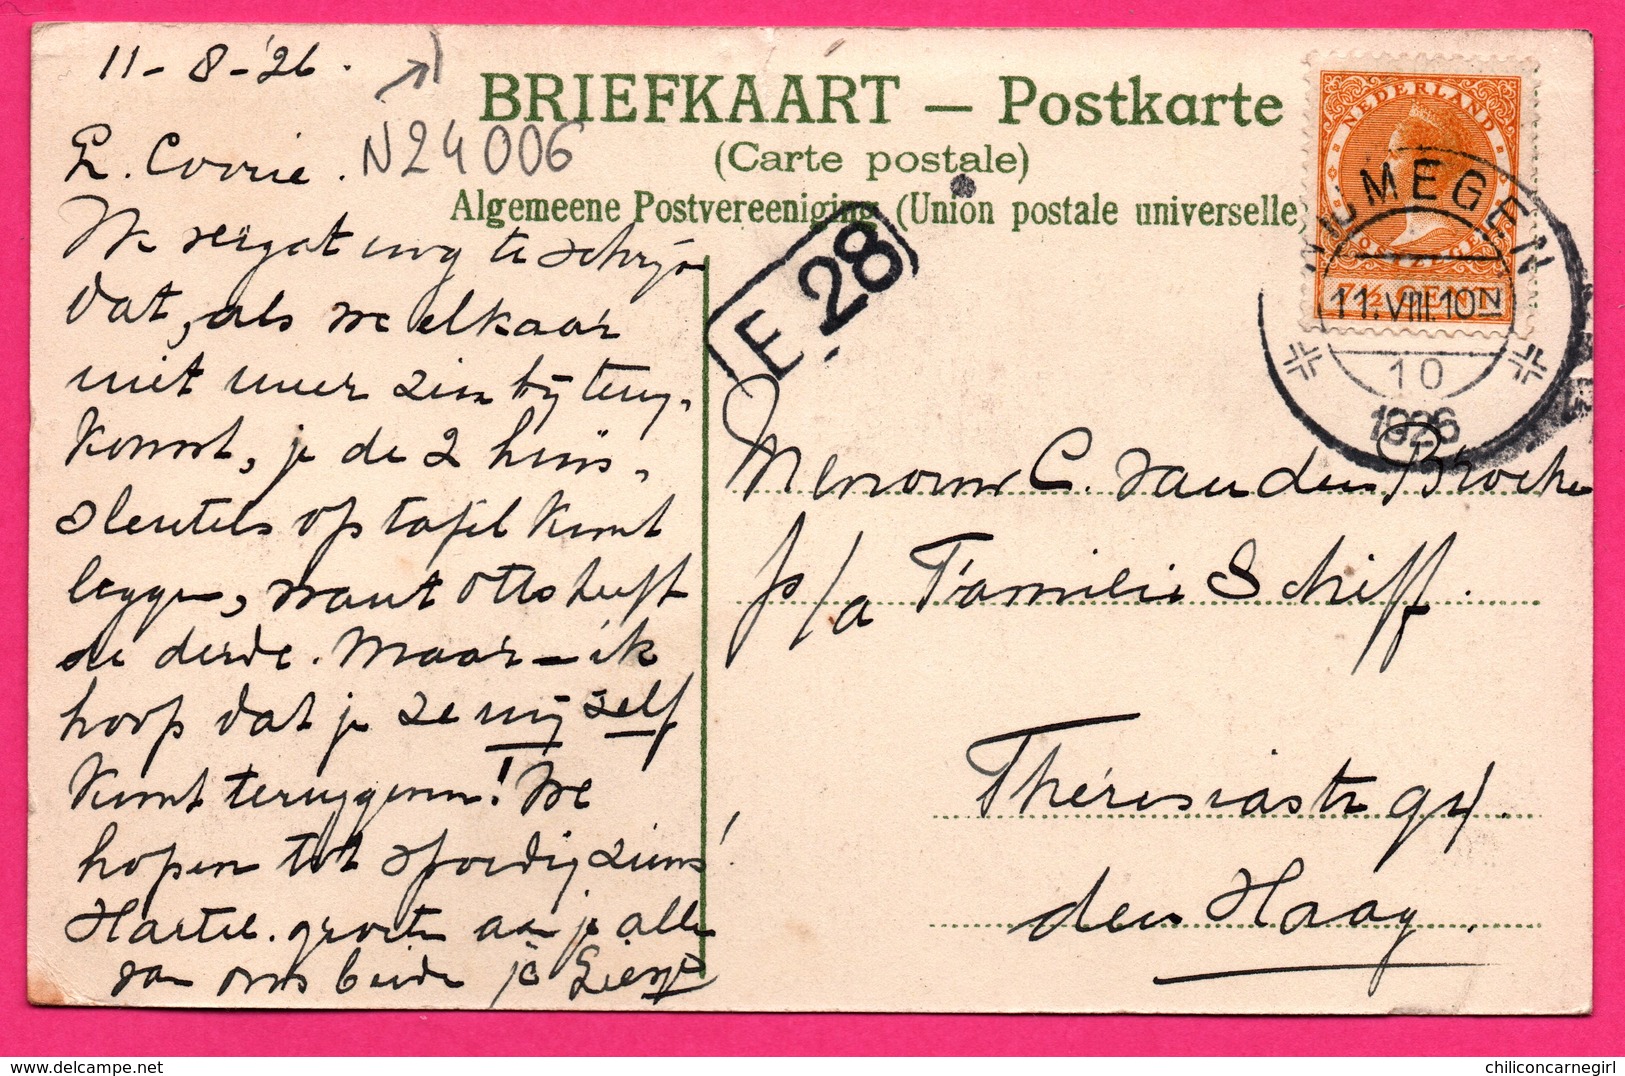 11-8-'26.
L. Corrie.
N24006
We vergat nog te schrijven
dat, als we elkaar
niet meer zien bij terug-
komst, je de 2 huis-
sleutels op tafel kunt
leggen, want Otto heeft
de derde. Maar – ik
hoop dat je ze mij zelf
kunt teruggeven! We
hopen tot spoedig ziens!
Hartel. groeten aan je allen
van ons beide je
BRIEFKAART — Postkarte
(Carte postale)
Algemeene Postvereeniging (Union postale universelle)
E 28
NEDERLAND
7½ CENT
NIJMEGEN
11.VIII.10N
10
1926
Mevrouw C. van den Broeke
p/a Familie Schiff.
Thérèsiastr
den Haag.
chiliconcarnegirl